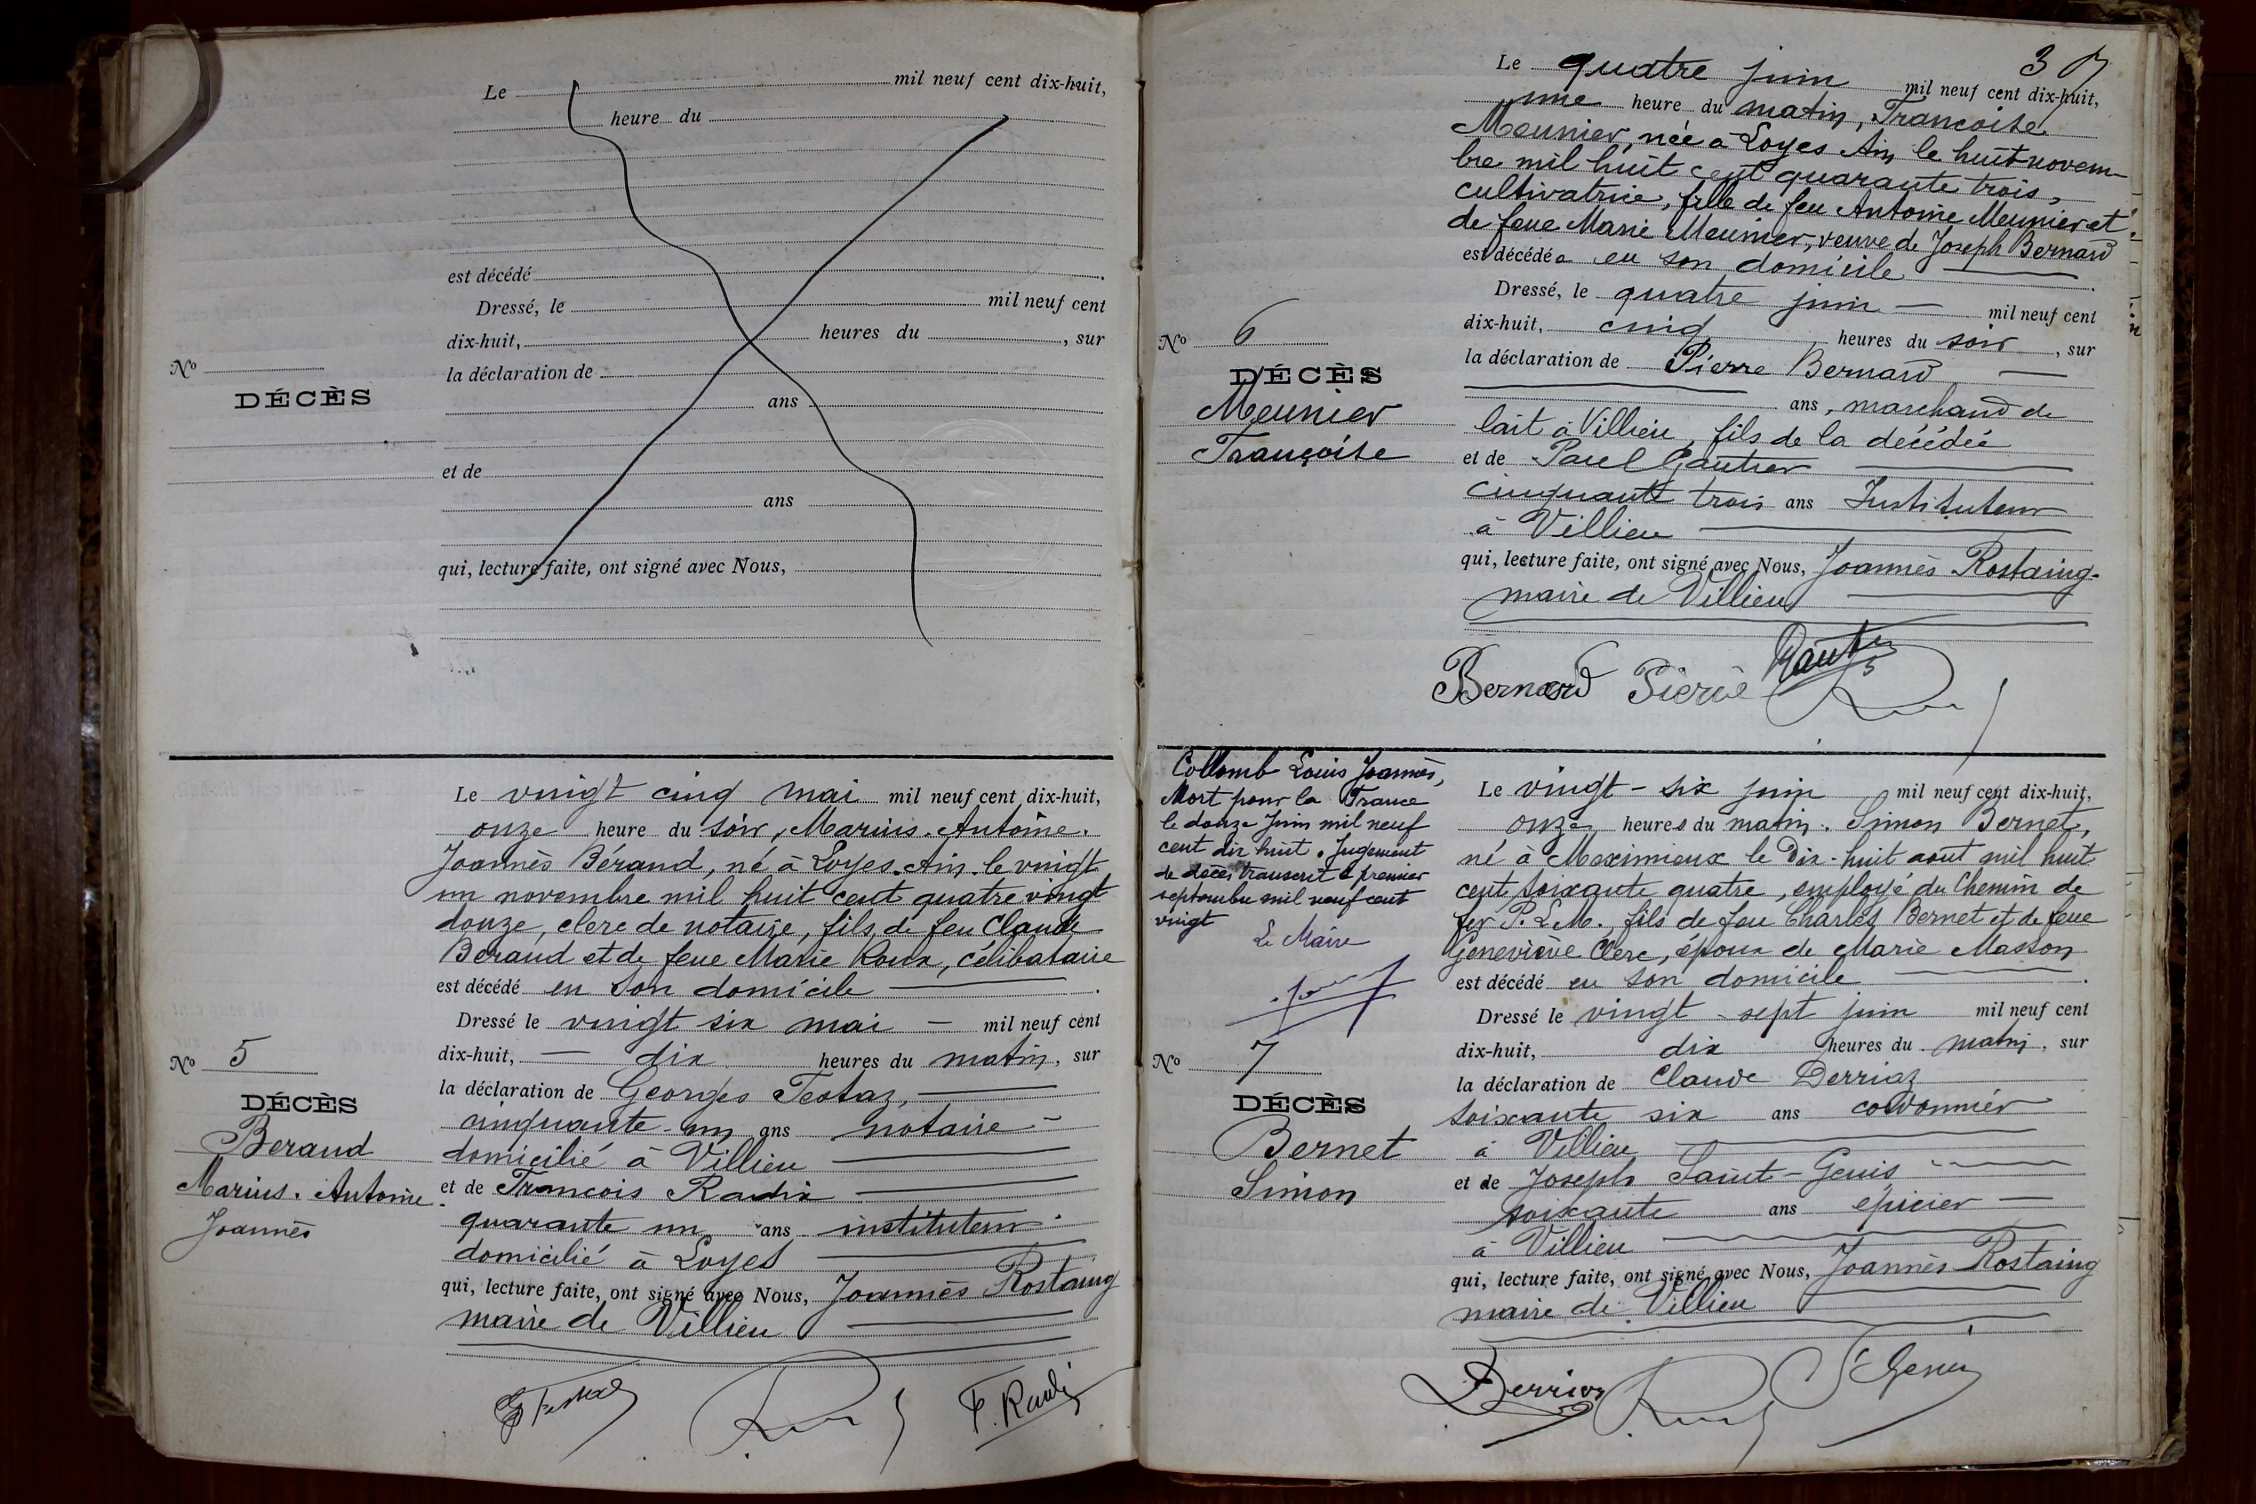 Le mil neuf cent dix-huit,
heure du
est décédé
Dressé, le mil neuf cent
dix-huit, heures du , sur
la déclaration de
ans
et de
ans
qui, lecture faite, ont signé avec Nous,
No
DÉCÈS
Le vingt cinq mai mil neuf cent dix-huit,
onze heure du soir, Marius. Antoine.
Joannès Bérand, né à Loyes. Ain. le vingt
un novembre mil huit cent quatre vingt
douze, clerc de notaire, fils de feu Claude
Beraud et de feue Marie Roux, célibataire
est décédé en son domicile
Dressé le vingt six mai – mil neuf cent
dix-huit, – dix heures du matin, sur
la déclaration de Georges Testaz,
cinquante-un ans notaire
domicilié à Villieu
et de Francois Radix
quarante un ans instituteur
domicilié à Loyes
qui, lecture faite, ont signé avec Nous, Joannès Rostaing
maire de Villieu
No 5
DÉCÈS
Beraud
Marius. Antoine.
Joannès
G Testaz
F. Radix
37
Le quatre juin mil neuf cent dix-huit,
une heure du matin, Francoise
Meunier, née à Loyes Ain le huit novem-
bre mil huit cent quarante trois,
cultivatrice, fille de feu Antoine Meunier et
de feue Marie Meunier, veuve de Joseph Bernard
est décédée en son domicile
Dressé, le quatre juin – mil neuf cent
dix-huit, cinq heures du soir , sur
la déclaration de Pierre Bernard
ans, marchand de
lait à Villieu, fils de la décédée
et de Paul Gautier
cinquante trois ans Instituteur
à Villieu
qui, lecture faite, ont signé avec Nous, Joannès Rostaing.
maire de Villieu
No 6
DÉCÈS
Meunier
Françoise
Bernard Pierre Gautier
Collomb Louis Joannès,
Mort pour la France
le douze Juin mil neuf
cent dix huit. Jugement
de décès transcrit le premier
septembre mil neuf cent
vingt
Le Maire
Le vingt-six juin mil neuf cent dix-huit,
onze heures du matin. Simon Bernet,
né à Meximieux le Dix-huit aout mil huit
cent soixante quatre, employé du Chemin de
fer P. L. M. fils de feu Charles Bernet et de feue
Geneviève Clerc, époux de Marie Masson
est décédé en son domicile
Dressé le vingt-sept juin mil neuf cent
dix-huit, dix heures du matin, sur
la déclaration de Claude Derriaz
soixante six ans cordonnier
à Villieu
et de Joseph Saint-Genis
soixante ans épicier
à Villieu
qui, lecture faite, ont signé avec Nous, Joannès Rostaing
maire de Villieu
No 7
DÉCÈS
Bernet
Simon
Derriaz
St Genis